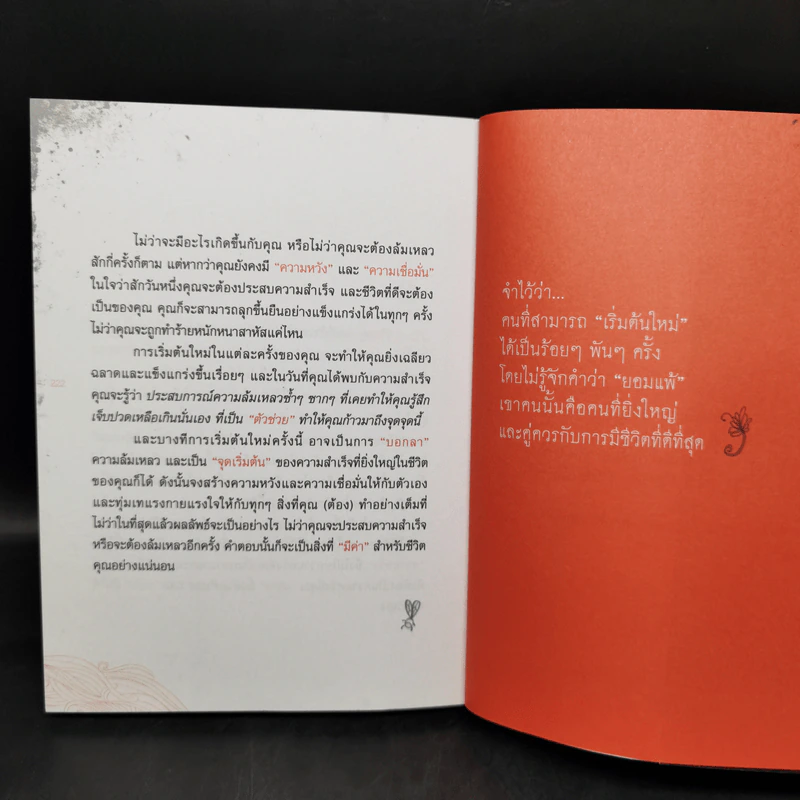 ไม่ว่าจะมีอะไรเกิดขึ้นกับคุณ หรือไม่ว่าคุณจะต้องล้มเหลว
สักกี่ครั้งก็ตาม แต่หากว่าคุณยังคงมี "ความหวัง" และ "ความเชื่อมั่น"
ในใจว่าสักวันหนึ่งคุณจะต้องประสบความสำเร็จ และชีวิตที่ดีจะต้อง
เป็นของคุณ คุณก็จะสามารถลุกขึ้นยืนอย่างแข็งแกร่งได้ในทุกๆ ครั้ง
ไม่ว่าคุณจะถูกทำร้ายหนักหนาสาหัสแค่ไหน
การเริ่มต้นใหม่ในแต่ละครั้งของคุณ จะทำให้คุณยิ่งเฉลียว
ฉลาดและแข็งแกร่งขึ้นเรื่อยๆ และในวันที่คุณได้พบกับความสำเร็จ
คุณจะรู้ว่า ประสบการณ์ความล้มเหลวซ้ำๆ ซากๆ ที่เคยทำให้คุณรู้สึก
เจ็บปวดเหลือเกินนั่นเอง ที่เป็น "ตัวช่วย" ทำให้คุณก้าวมาถึงจุดจุดนี้
และบางทีการเริ่มต้นใหม่ครั้งนี้ อาจเป็นการ "บอกลา"
ความล้มเหลว และเป็น "จุดเริ่มต้น" ของความสำเร็จที่ยิ่งใหญ่ในชีวิต
ของคุณก็ได้ ดังนั้นจงสร้างความหวังและความเชื่อมั่นให้กับตัวเอง
และทุ่มเทแรงกายแรงใจให้กับทุกๆ สิ่งที่คุณ (ต้อง) ทำอย่างเต็มที่
ไม่ว่าในที่สุดแล้วผลลัพธ์จะเป็นอย่างไร ไม่ว่าคุณจะประสบความสำเร็จ
หรือจะต้องล้มเหลวอีกครั้ง คำตอบนั้นก็จะเป็นสิ่งที่ "มีค่า" สำหรับชีวิต
คุณอย่างแน่นอน
จำไว้ว่า...
คนที่สามารถ "เริ่มต้นใหม่"
ได้เป็นร้อยๆ พันๆ ครั้ง
โดยไม่รู้จักคำว่า "ยอมแพ้"
เขาคนนั้นคือคนที่ยิ่งใหญ่
และคู่ควรกับการมีชีวิตที่ดีที่สุด